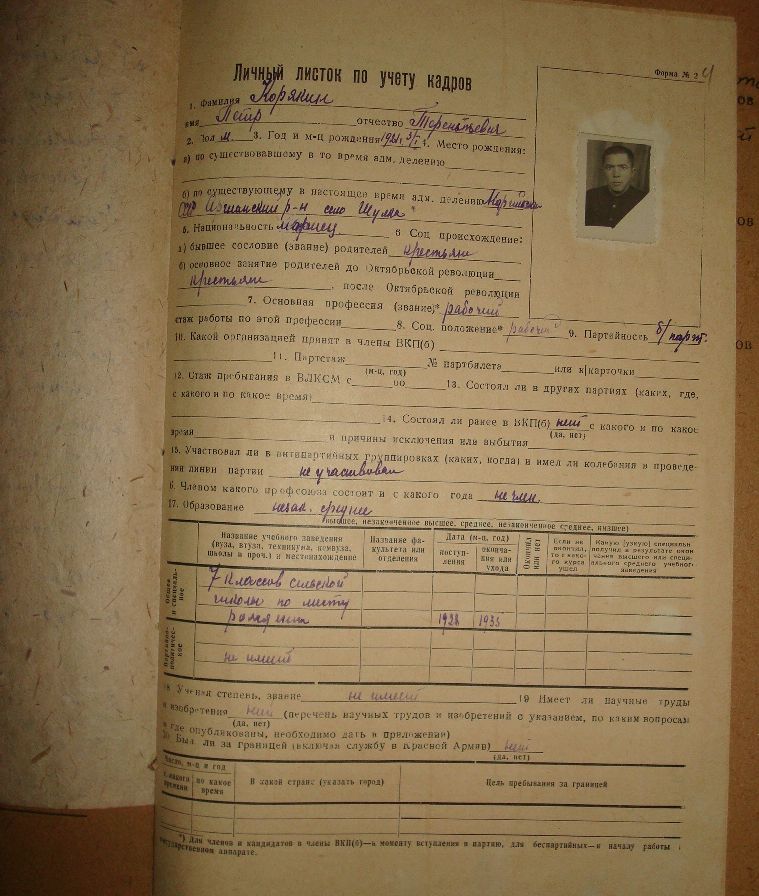 Форма № 2 4
Личный листок по учету кадров
1. Фамилия Корякин
имя Петр отчество Терентьевич
2. Пол м. 3. Год и м-ц рождения 4. Место рождения:
а) по существовавшему в то время адм. делению
б) по существующему в настоящее время адм. делению Марийская
р-н село Шулка
5. Национальность мариец 6 Соц происхождение:
а) бывшее сословие (звание) родителей крестьяне
б) основное занятие родителей до Октябрьской революции
крестьяне , после Октябрьской революции
7. Основная профессия (звание)* рабочий
стаж работы по этой профессии 8. Соц. положение* рабочий 9. Партийность б/парт.
10. Какой организацией принят в члены ВКП(б)
11. Партстаж № партбилета или к|карточки
(м-ц, год)
12. Стаж пребывания в ВЛКСМ с по 13. Состоял ли в других партиях (каких, где,
с какого и по какое время)
14. Состоял ли ранее в ВКП(б) нет с какого и по какое
(да, нет)
время и причины исключения или выбытия
15. Участвовал ли в антипартийных группировках (каких, когда) и имел ли колебания в проведе-
нии линии партии не участвовал
6. Членом какого профсоюза состоит и с какого года не член
17. Образование незак. среднее
высшее, незаконченное высшее, среднее, незаконченное среднее, низшее)
Название учебного заведения (вуза, втуза, техникума, комвуза, школы и проч.) и местонахождение
Название факультета или отделения
Дата (м-ц, год)
поступ-
ления
оконча-
ния или
ухода
Окончил
или нет
Если не
окончил,
то с како-
го курса
ушел
Какую (узкую) специальн
получил в результате окон
чания высшего или специ-
ального среднего учебног
заведения
Общее
и специаль-
ное
7 классов сельской
школы по месту
рождения 1928 1935
Партийно-
политичес-
кое
не имеет
18 Ученая степень, звание не имеет 19 Имеет ли научные труды
и изобретения нет (перечень научных трудов и изобретений с указанием, по каким вопросам
(да, нет)
и где опубликованы, необходимо дать в приложении)
20 Был ли за границей (включая службу в Красной Армии) нет
(да, нет)
Число, м-ц и год
с какого
времени
по какое
время
В какой стране (указать город)
Цель пребывания за границей
*) Для членов и кандидатов в члены ВКП(б)—к моменту вступления в партию, для беспартийных—к началу работы
государственном аппарате.